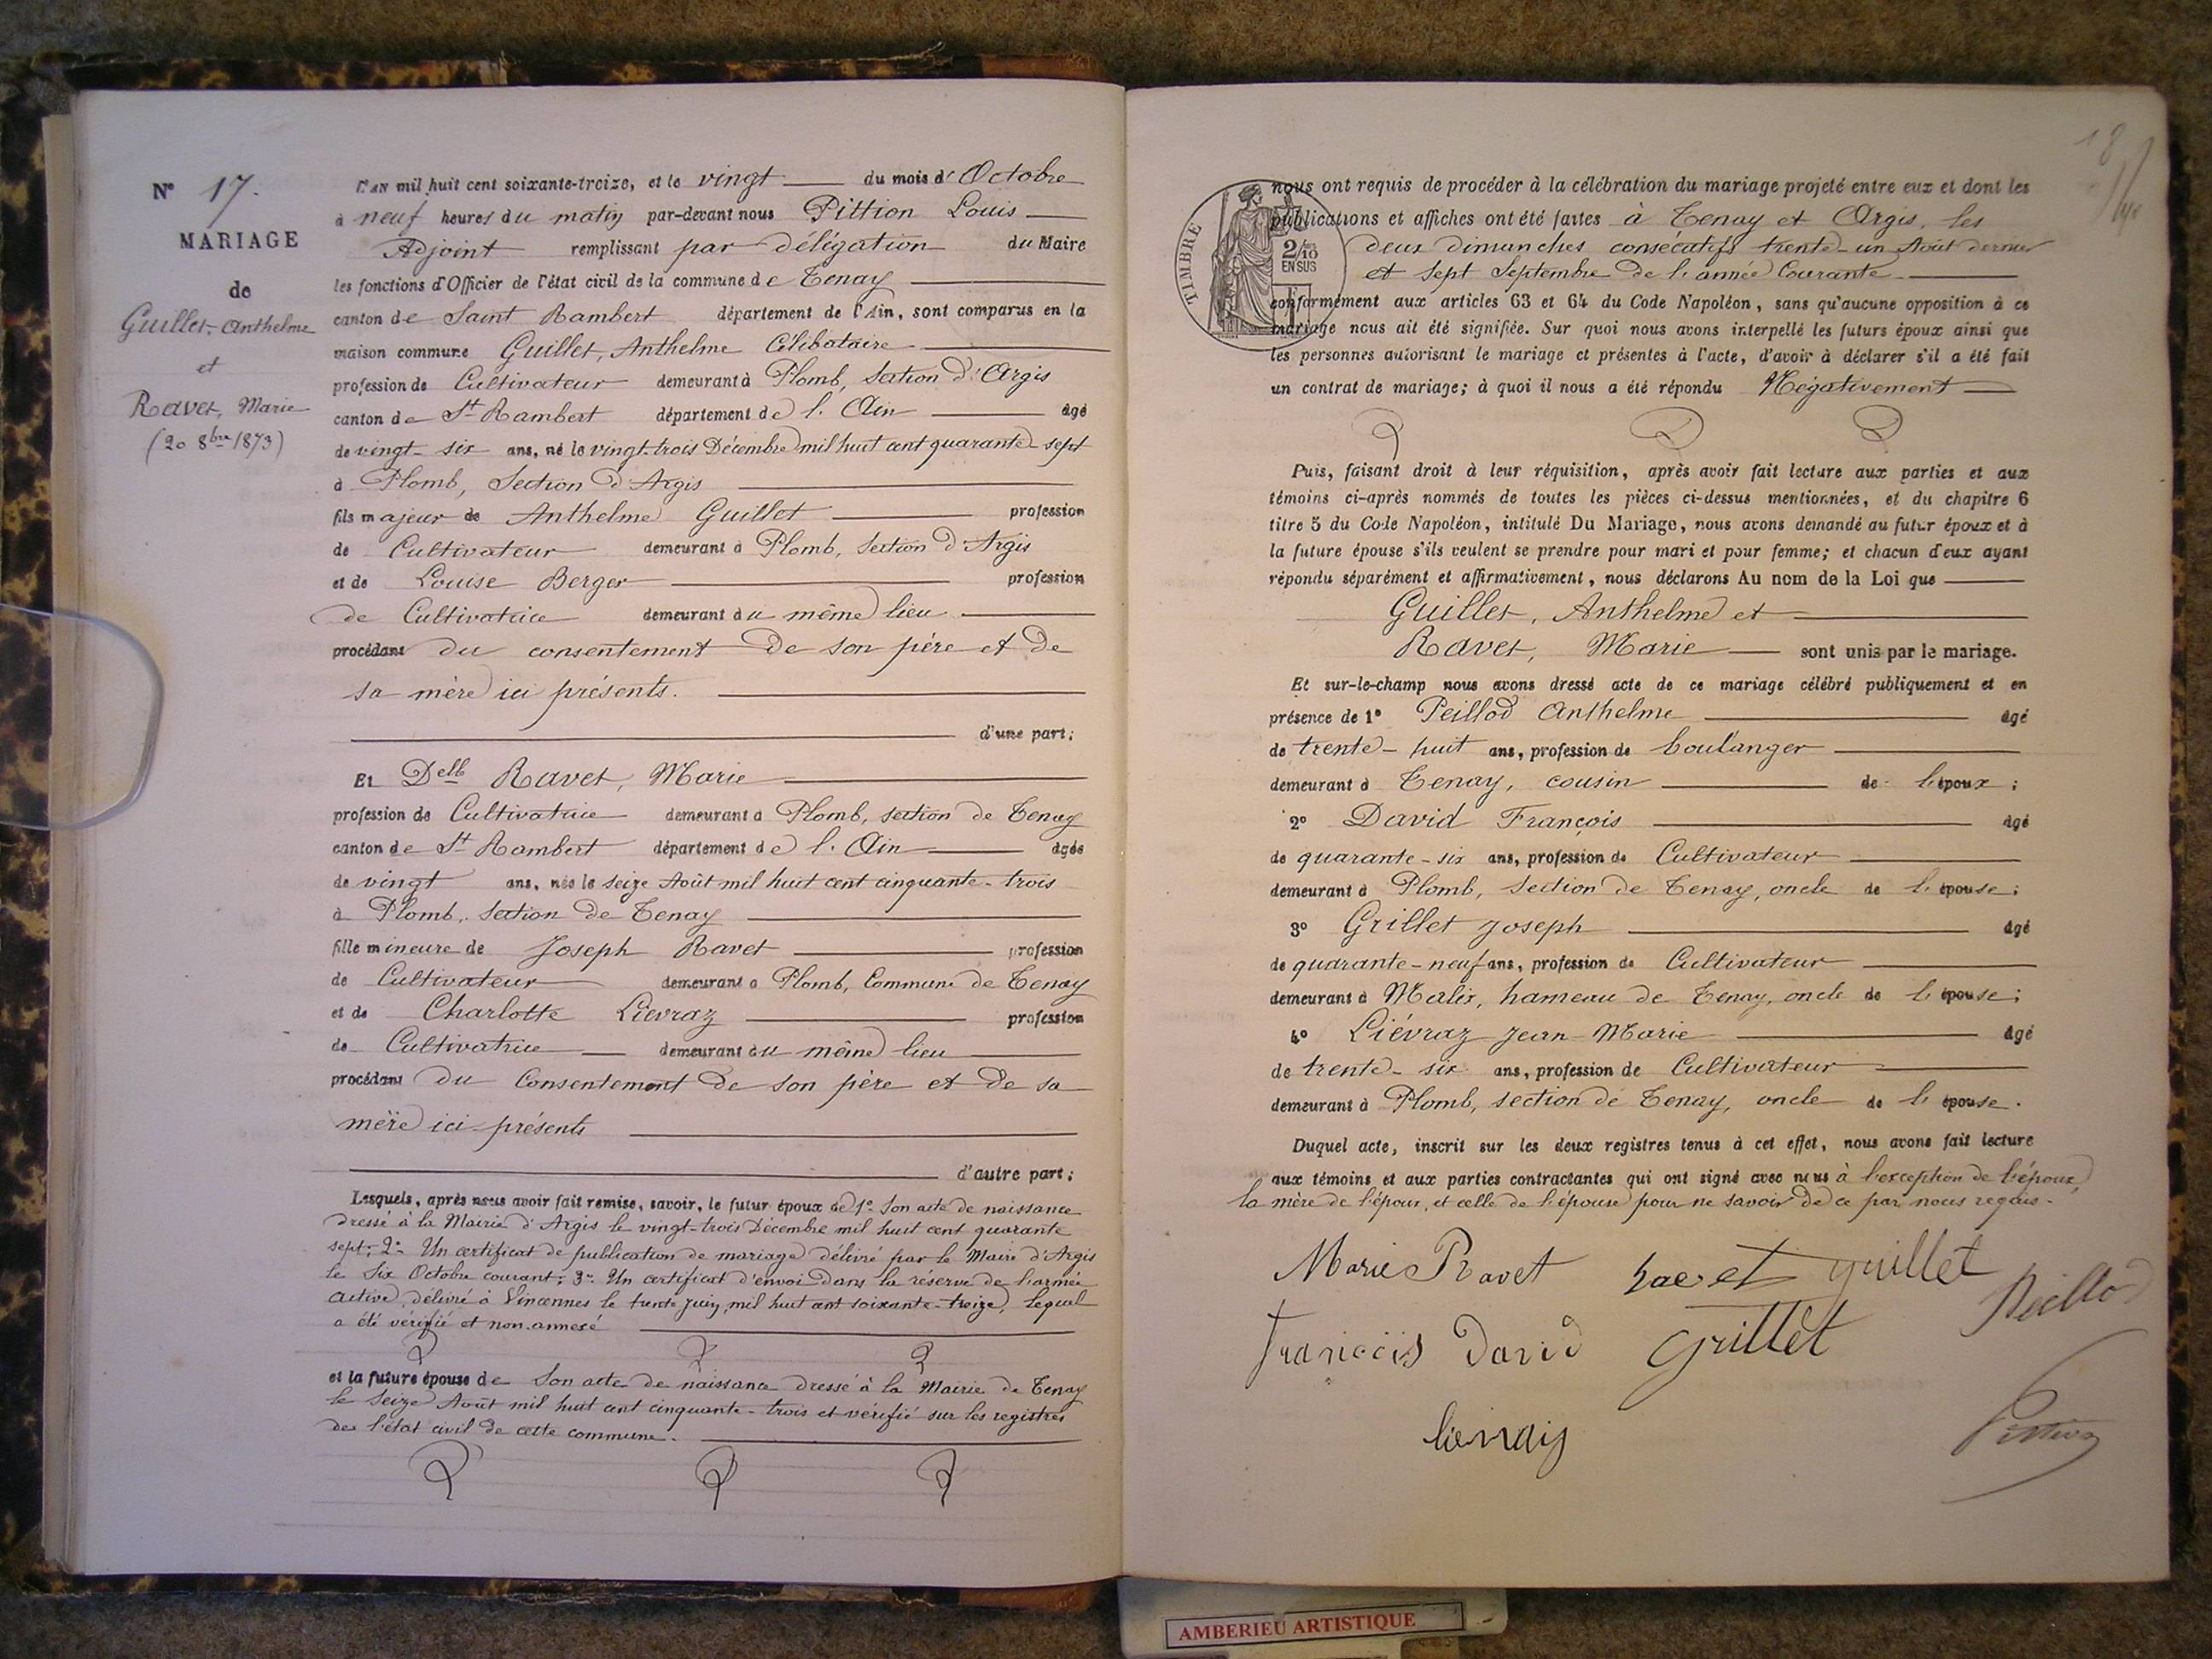 N° 17.
MARIAGE
de
Guillet, Anthelme
et
Ravet, Marie
(20 8bre 1873)
L'AN mil huit cent soixante-treize, et le vingt du mois d'Octobre
à neuf heures du matin par-devant nous Pittion Louis
Adjoint remplissant par délégation du Maire
les fonctions d'Officier de l'état civil de la commune de Tenay
canton de Saint Rambert département de l'Ain, sont comparus en la
maison commune Guillet, Anthelme Célibataire
profession de Cultivateur demeurant à Plomb, Section d'Argis
canton de St Rambert département de l'Ain âgé
de vingt-six ans, né le vingt-trois Décembre mil huit cent quarante-sept
à Plomb, Section d'Argis
fils majeur de Anthelme Guillet profession
de Cultivateur demeurant à Plomb, Section d'Argis
et de Louise Berger profession
de Cultivatrice demeurant au même lieu
procédant du consentement de son père et de
sa mère ici présents.
d'une part;
Et Delle Ravet, Marie
profession de Cultivatrice demeurant à Plomb, section de Tenay
canton de St Rambert département de l'Ain âgée
de vingt ans, née le seize Août mil huit cent cinquante-trois
à Plomb, Section de Tenay
fille mineure de Joseph Ravet profession
de Cultivateur demeurant à Plomb, Commune de Tenay
et de Charlotte Liévraz profession
de Cultivatrice demeurant au même lieu
procédant du Consentement de son père et de sa
mère ici présents
d'autre part;
Lesquels, après nous avoir fait remise, savoir, le futur époux de 1° Son acte de naissance
dressé à la Mairie d'Argis le vingt-trois Décembre mil huit cent quarante
sept; 2° Un certificat de publication de mariage délivré par le Maire d'Argis
le Six Octobre courant; 3° Un certificat d'envoi dans la réserve de l'armée
active, délivré à Vincennes le trente juin mil huit cent soixante-treize, lequel
a été vérifié et non annexé
et la future épouse de Son acte de naissance dressé à la Mairie de Tenay
le Seize Août mil huit cent cinquante-trois et vérifié sur les registres
de l'état civil de cette commune.
18
TIMBRE
2/10
EN SUS
nous ont requis de procéder à la célébration du mariage projeté entre eux et dont les
publications et affiches ont été faites à Tenay et Argis, les
deux dimanches consécutifs trente-un Août dernier
et sept Septembre de l'année Courante
conformément aux articles 63 et 64 du Code Napoléon, sans qu'aucune opposition à ce
mariage nous ait été signifiée. Sur quoi nous avons interpellé les futurs époux ainsi que
les personnes autorisant le mariage et présentes à l'acte, d'avoir à déclarer s'il a été fait
un contrat de mariage; à quoi il nous a été répondu Négativement
Puis, faisant droit à leur réquisition, après avoir fait lecture aux parties et aux
témoins ci-après nommés de toutes les pièces ci-dessus mentionnées, et du chapitre 6
titre 5 du Code Napoléon, intitulé Du Mariage, nous avons demandé au futur époux et à
la future épouse s'ils veulent se prendre pour mari et pour femme; et chacun d'eux ayant
répondu séparément et affirmativement, nous déclarons Au nom de la Loi que
Guillet, Anthelme et
Ravet, Marie sont unis par le mariage.
Et sur-le-champ nous avons dressé acte de ce mariage célébré publiquement et en
présence de 1° Peillod Anthelme âgé
de trente-huit ans, profession de boulanger
demeurant à Tenay, cousin de l'époux;
2° David François âgé
de quarante-six ans, profession de Cultivateur
demeurant à Plomb, Section de Tenay, oncle de l'épouse;
3° Grillet Joseph âgé
de quarante-neuf ans, profession de Cultivateur
demeurant à Malix, hameau de Tenay, oncle de l'épouse;
4° Liévraz Jean-Marie âgé
de trente-six ans, profession de Cultivateur
demeurant à Plomb, section de Tenay, oncle de l'épouse.
Duquel acte, inscrit sur les deux registres tenus à cet effet, nous avons fait lecture
aux témoins et aux parties contractantes qui ont signé avec nous à l'exception de l'époux,
la mère de l'époux, et celle de l'épouse pour ne savoir de ce par nous requis.
Marie Ravet Ravet Guillet
Peillod
François David Grillet
Pittion
AMBERIEU ARTISTIQUE